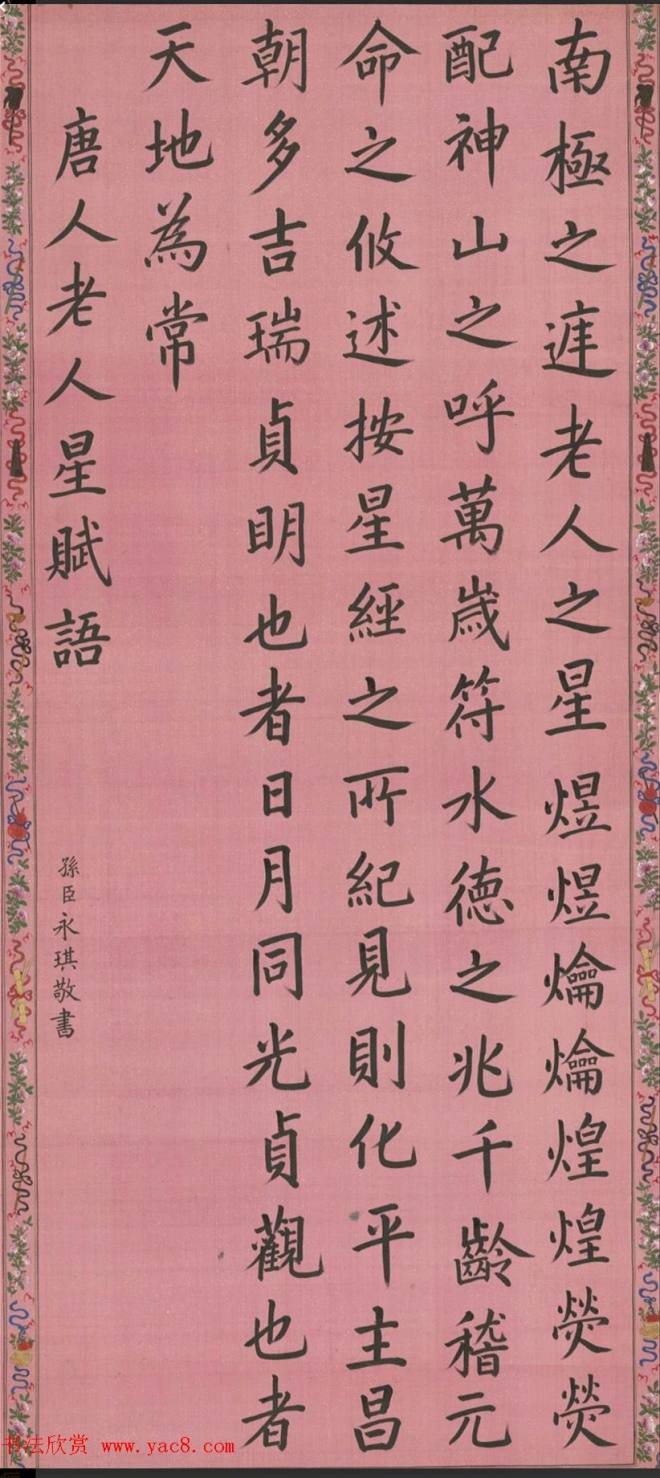 南極之涯老人之星煜煜爚爚煌煌熒熒
配神山之呼萬歲符水德之兆千齡稽元
命之攸述按星經之所紀見則化平主昌
朝多吉瑞貞明也者日月同光貞觀也者
天地為常
唐人老人星賦語
孫臣永琪敬書
书法欣赏 www.yac8.com